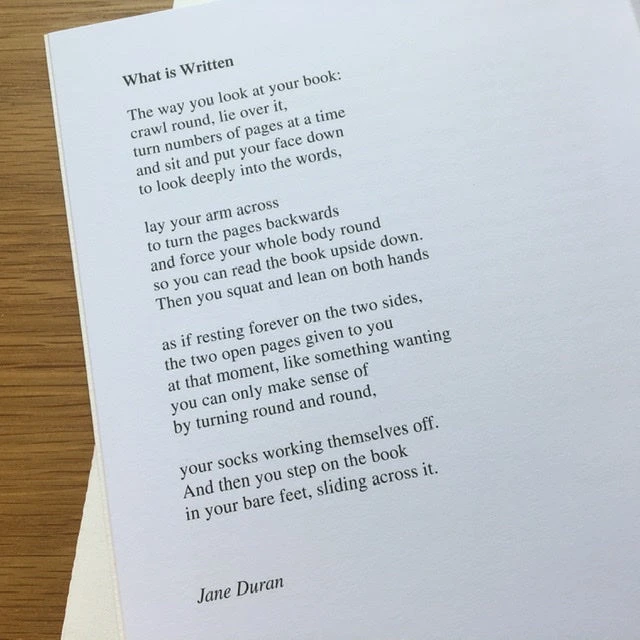 What is Written
The way you look at your book:
crawl round, lie over it,
turn numbers of pages at a time
and sit and put your face down
to look deeply into the words,
lay your arm across
to turn the pages backwards
and force your whole body round
so you can read the book upside down.
Then you squat and lean on both hands
as if resting forever on the two sides,
the two open pages given to you
at that moment, like something wanting
you can only make sense of
by turning round and round,
your socks working themselves off.
And then you step on the book
in your bare feet, sliding across it.
Jane Duran